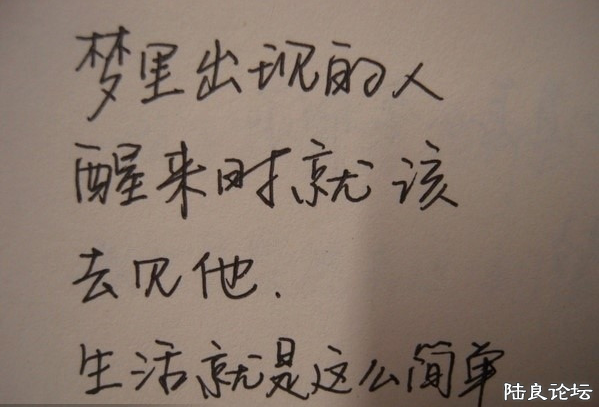 梦里出现的人
醒来时就该
去见他.
生活就是这么简单
陆良论坛